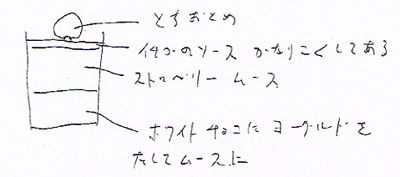 とちおとめ
イチゴのソース かなりこくしてある
ストロベリー ムース
ホワイトチョコに ヨーグルトを
たしてムースに